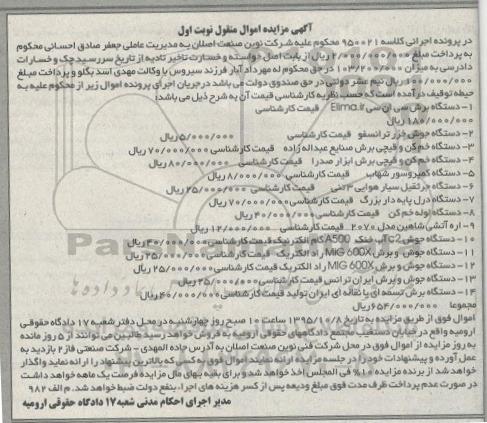 آگهی مزایده اموال منقول نوبت اول
در پرونده اجرائی کلاسه ۹۵۰۰۲۱ محکوم علیه شرکت نوین صنعت اصلان به مدیریت عاملی جعفر صادق احسانی محکوم
به پرداخت مبلغ ۲/۰۰۰/۰۰۰/۰۰۰ ریال از بابت اصل خواسته و خسارت تاخیر تادیه از تاریخ سررسید چک و خسارات
دادرسی به میزان ۱۰۳/۲۰۰/۰۰۰ در حق محکوم له مهرداد آبار فرزند سیروس با وکالت مهدی اسد بگلو و پرداخت مبلغ
۱۰۰/۰۰۰/۰۰۰ ریال نیم عشر دولتی در حق صندوق دولت می باشد در جریان اجرای پرونده اموال زیر از محکوم علیه به
حیطه توقیف درآمده است که حسب نظریه کارشناسی قیمت آن به شرح ذیل می باشد:
۱- دستگاه برش سی ان سی Elima.ir قیمت کارشناسی
۱۸۰/۰۰۰/۰۰۰ ریال
۲- دستگاه جوش خزر ترانسفو قیمت کارشناسی ۵/۰۰۰/۰۰۰ ریال
۳- دستگاه خم کن و قیچی برش صنایع عبداله زاده قیمت کارشناسی ۷۰/۰۰۰/۰۰۰ ریال
۴- دستگاه خم کن و قیچی برش ابزار صدرا قیمت کارشناسی ۸۰/۰۰۰/۰۰۰ ریال
۵- دستگاه کمپروسور شهاب قیمت کارشناسی ۸/۰۰۰/۰۰۰ ریال
۶- دستگاه جرثقیل سیار هوایی ۳ تنی قیمت کارشناسی ۲۵/۰۰۰/۰۰۰ ریال
۷- دستگاه درل پایه دار بزرگ قیمت کارشناسی ۷۰/۰۰۰/۰۰۰ ریال
۸- دستگاه لوله خم کن قیمت کارشناسی ۲۰/۰۰۰/۰۰۰ ریال
۹- اره آتشی شاهین مدل ۲۰۷۰ قیمت کارشناسی ۱۲/۰۰۰/۰۰۰ ریال
۱۰- دستگاه جوش TC2 آب خنک A500 گام الکترنیک قیمت کارشناسی ۴۰/۰۰۰/۰۰۰ ریال
۱۱- دستگاه جوش و برش MIG 600X راد الکتریک قیمت کارشناسی ۲۵/۰۰۰/۰۰۰ ریال
۱۲- دستگاه جوش و برش MIG 600X راد الکتریک قیمت کارشناسی ۲۵/۰۰۰/۰۰۰ ریال
۱۳- دستگاه جوش و برش ایران ترانس قیمت کارشناسی ۲۵/۰۰۰/۰۰۰ ریال
۱۴- دستگاه برش تسمه ای یا نقاله ای ایران تولید قیمت کارشناسی ۴۰/۰۰۰/۰۰۰ ریال
مجموعا ۶۵۴/۰۰۰/۰۰۰ ریال
اموال فوق از طریق مزایده به تاریخ ۱۳۹۵/۱۰/۸ ساعت ۱۰ صبح روز چهارشنبه در محل دفتر شعبه ۱۷ دادگاه حقوقی
ارومیه واقع در خیابان دستغیب مجتمع دادگاههای حقوقی ارومیه به فروش خواهد رسید طالبین می توانند از ۵ روز مانده
به روز مزایده از اموال فوق در محل شرکت فنی نوین صنعت اصلان به آدرس جاده المهدی - شرکت صنعتی فاز ۲ بازدید به
عمل آورده و پیشنهادات خود را در جلسه مزایده ارائه نمایند اموال فوق به کسی که بالاترین پیشنهاد را ارائه نماید واگذار
خواهد شد از برنده مزایده ۱۰% فی المجلس اخذ خواهد شد و برای بقیه بهای مال مزایده فرصت یک ماهه خواهد داشت
در صورت عدم پرداخت ظرف مدت فوق مبلغ ودیعه پس از کسر هزینه های اجراء بنفع دولت ضبط خواهد شد. م الف ۹۸۲
مدیر اجرای احکام مدنی شعبه ۱۷ دادگاه حقوقی ارومیه